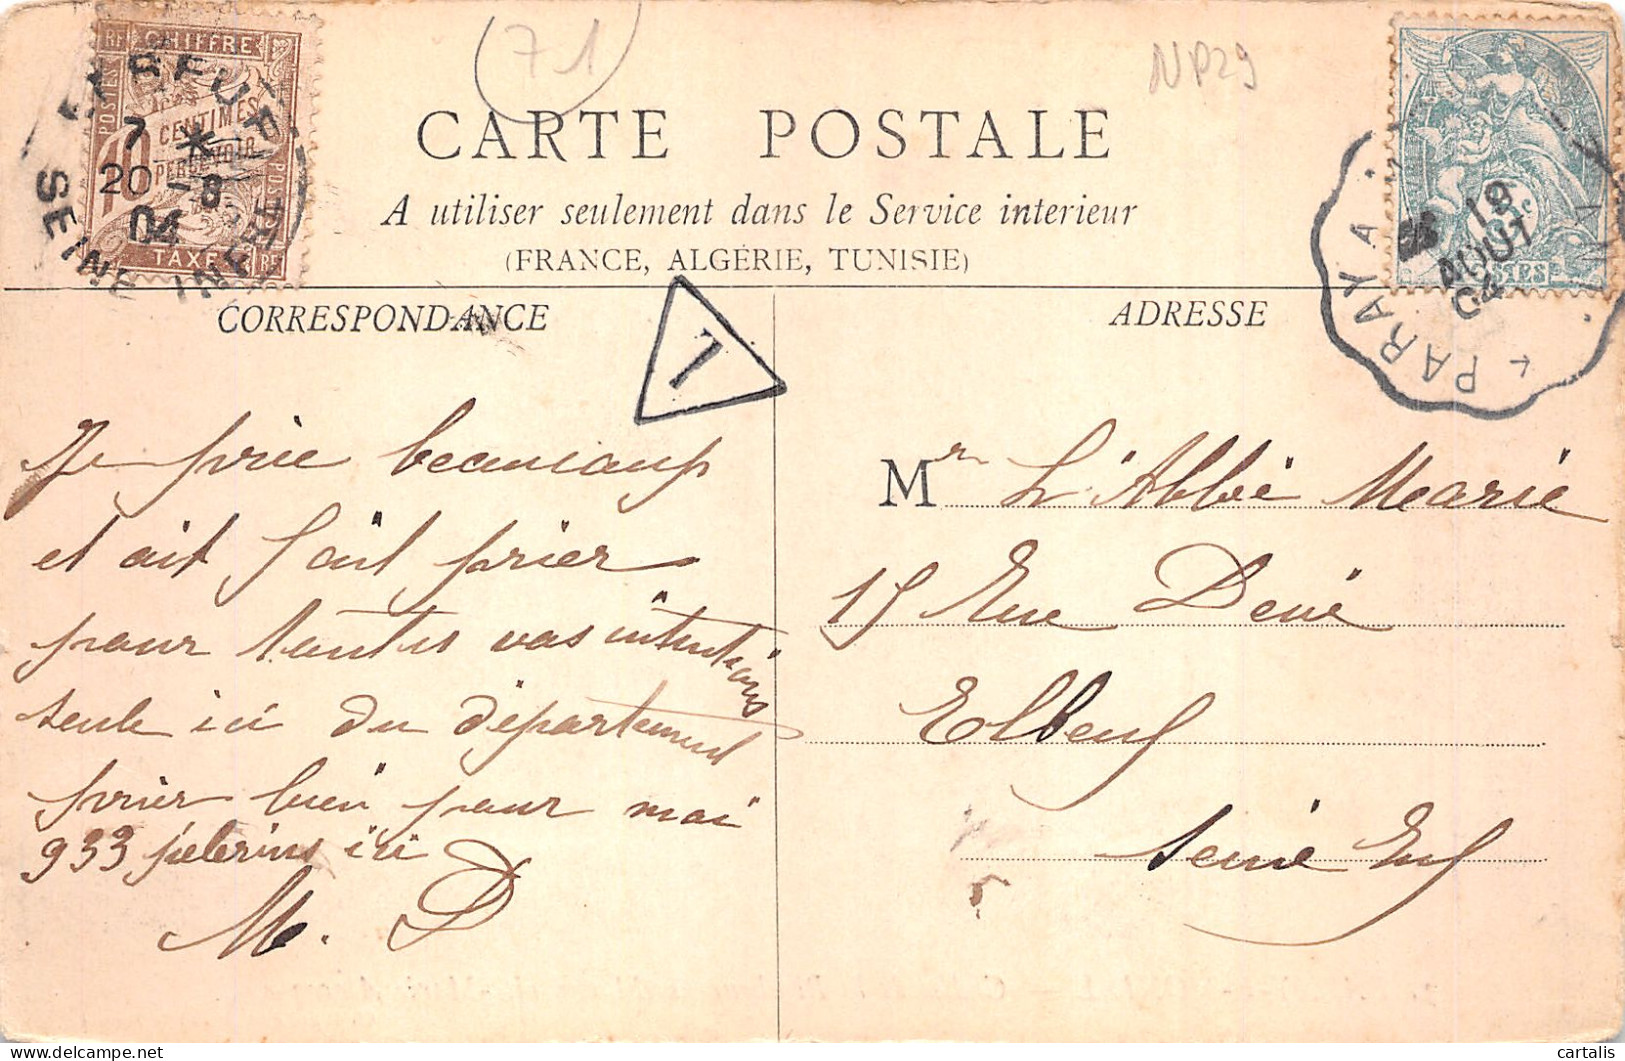 71
NP29
RF CHIFFRE RF
POSTES
10 CENTIMES
PERCEVOIR
POSTES
TAXE RF
7 *
20 - 8
04
SEINE INFERIE
CARTE POSTALE
A utiliser seulement dans le Service interieur
(FRANCE, ALGÉRIE, TUNISIE)
PARAY A
19
AOUT
04
5c
POSTES
CORRESPONDANCE
ADRESSE
T
Je prie beaucoup
et ait fait prier
pour toutes vos intentions
seule ici du département
prier bien pour moi
933 pelerins ici
M. D
Mr L'Abbé Marie
15 Rue Devé
Elbeuf
Seine Inf
cartalis
delcampe.net